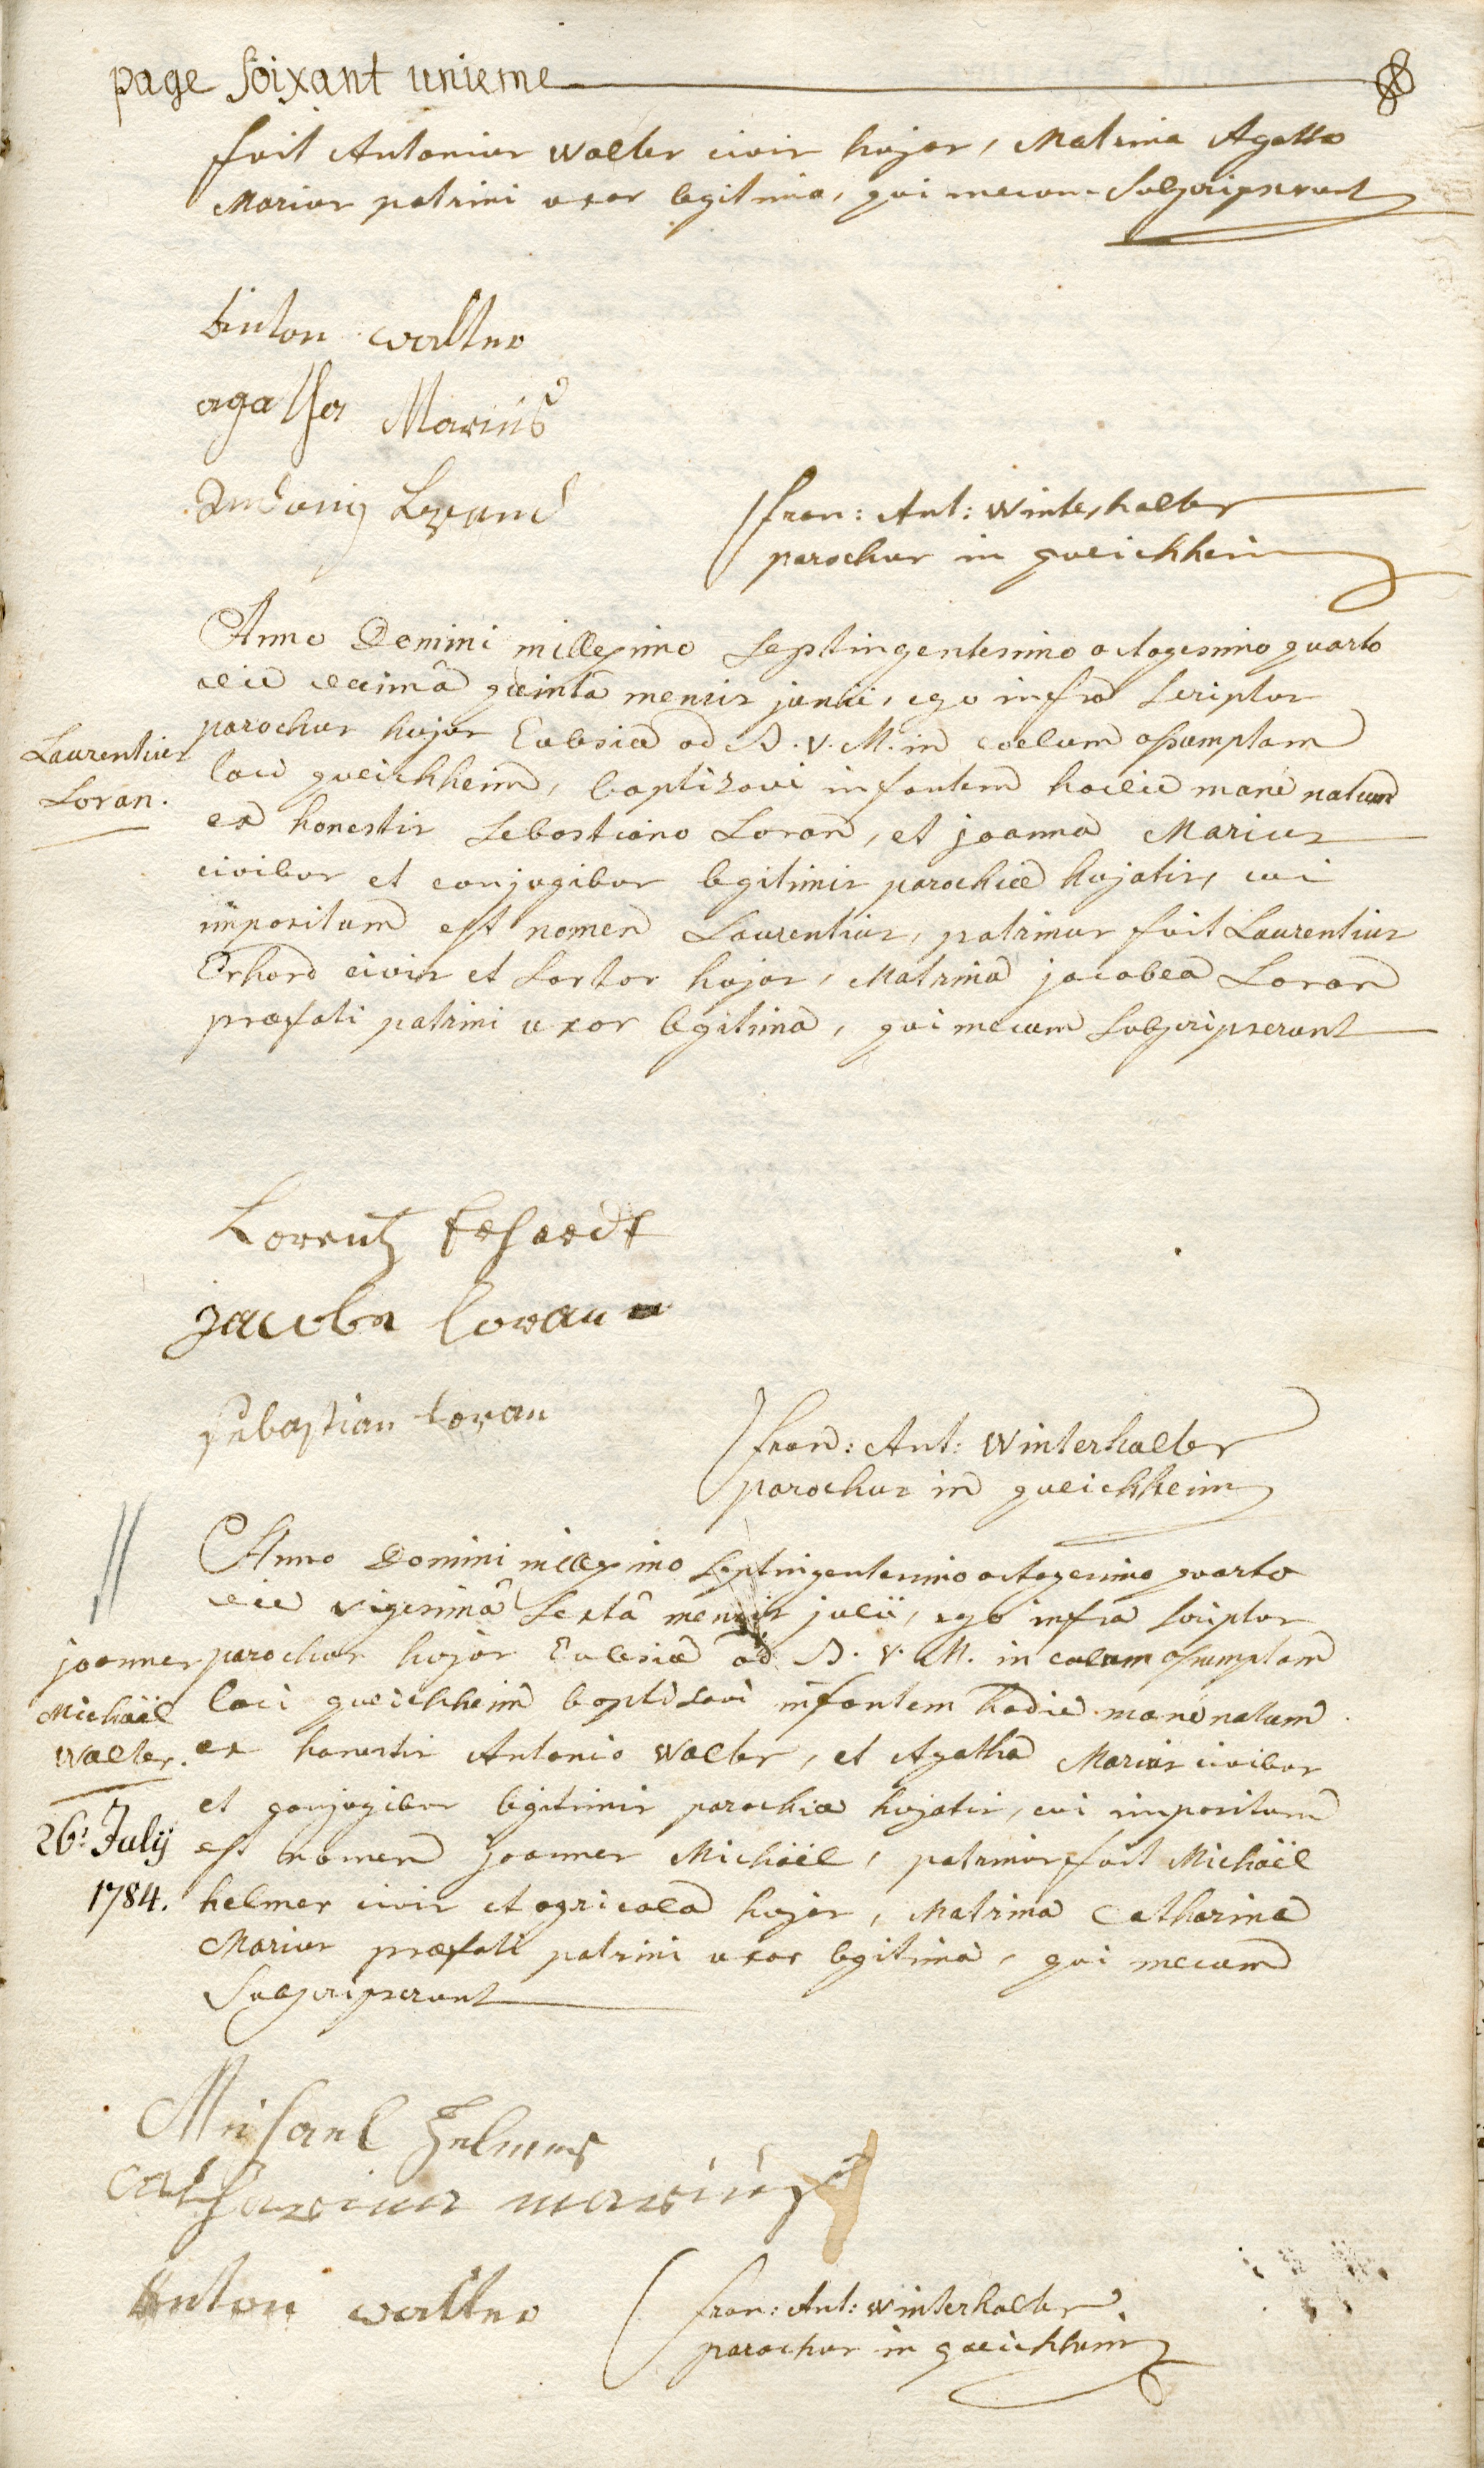 page soixant unieme
fuit Antonius Walter civis hujas, Matrina Agatha
Marius patrini uxor legitima, qui mecum subscripserunt
Anton Walter
agatha Marius
Lorand
fran: Ant: Winterhalter
parochus in gueichheim
Anno Domini millesimo septingentesimo octogesimo quarto
die decimâ quintâ mensis junii, ego infra scriptus
parochus hujus Eclesiae ad B. V. M. in coelum assumptam
Laurentius
Loran.
loci gueichheim, baptizavi infantem hodie mane natum
ex honestis Sebastiano Loran, et joanna Marius
civibus et conjugibus legitimis parochiae hujatis, cui
impositum est nomen Laurentius, patrinus fuit Laurentius
Erhard civis et sartor hujas, Matrina jacobea Loran
praefati patrini uxor legitima, qui mecum subscripserunt
Lorentz Erhardt
jacoba loran
sebastian loran
fran: Ant: Winterhalter
parochus in gueichheim
Anno Domini millesimo septingentesimo octogesimo quarto
die vigesimâ sextâ mensis julii, ego infra scriptus
parochus hujus Eclesiae ad B. V. M. in coelum assumptam
joannes
Michäel
Walter.
26: Julij
1784.
loci gueichheim baptisavi infantem hodie mane natum
ex honestis Antonio Walter, et Agatha Marius civibus
et conjugibus legitimis parochiae hujatis, cui impositum
est nomen joannes Michäel, patrinus fuit Michäel
helmer civis et agricola hujas, Matrina Catharina
Marius praefati patrini uxor legitima, qui mecum
subscripserunt
Michael Helmer
catharina marius
Anton Walter
fran: Ant: Winterhalter
parochus in gueichheim